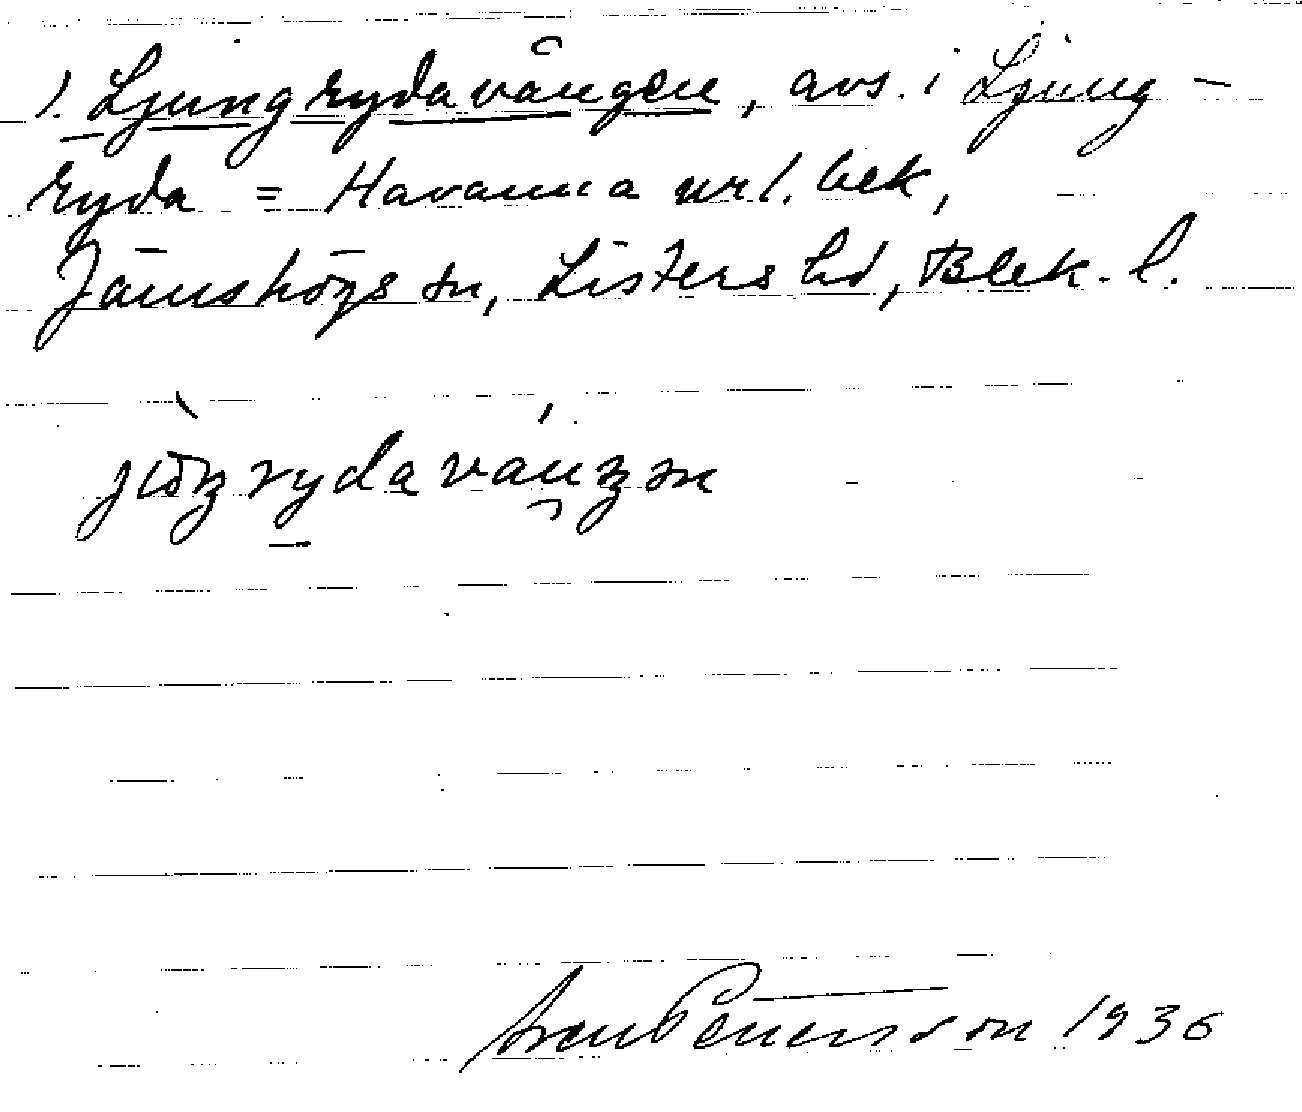 1. Ljungrydavången, avs. i Ljung-
ryda = Havanna urspr. bek,
Jämshögs sn, Listers hd, Blek. l.
Sven Petersson 1936